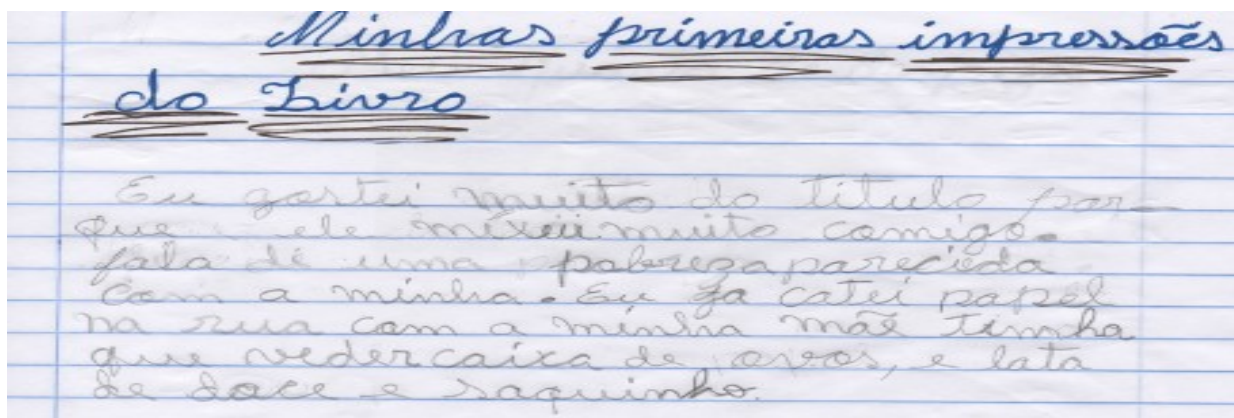 Minhas primeiras impressões
do Livro
Eu gostei muito do titulo por-
que ele mixeu muito comigo.
fala de uma pobreza parecida
com a minha. Eu ja catei papel
na rua com a minha mãe tinha
que veder caixa de ovos, e lata
de doce e saquinho.